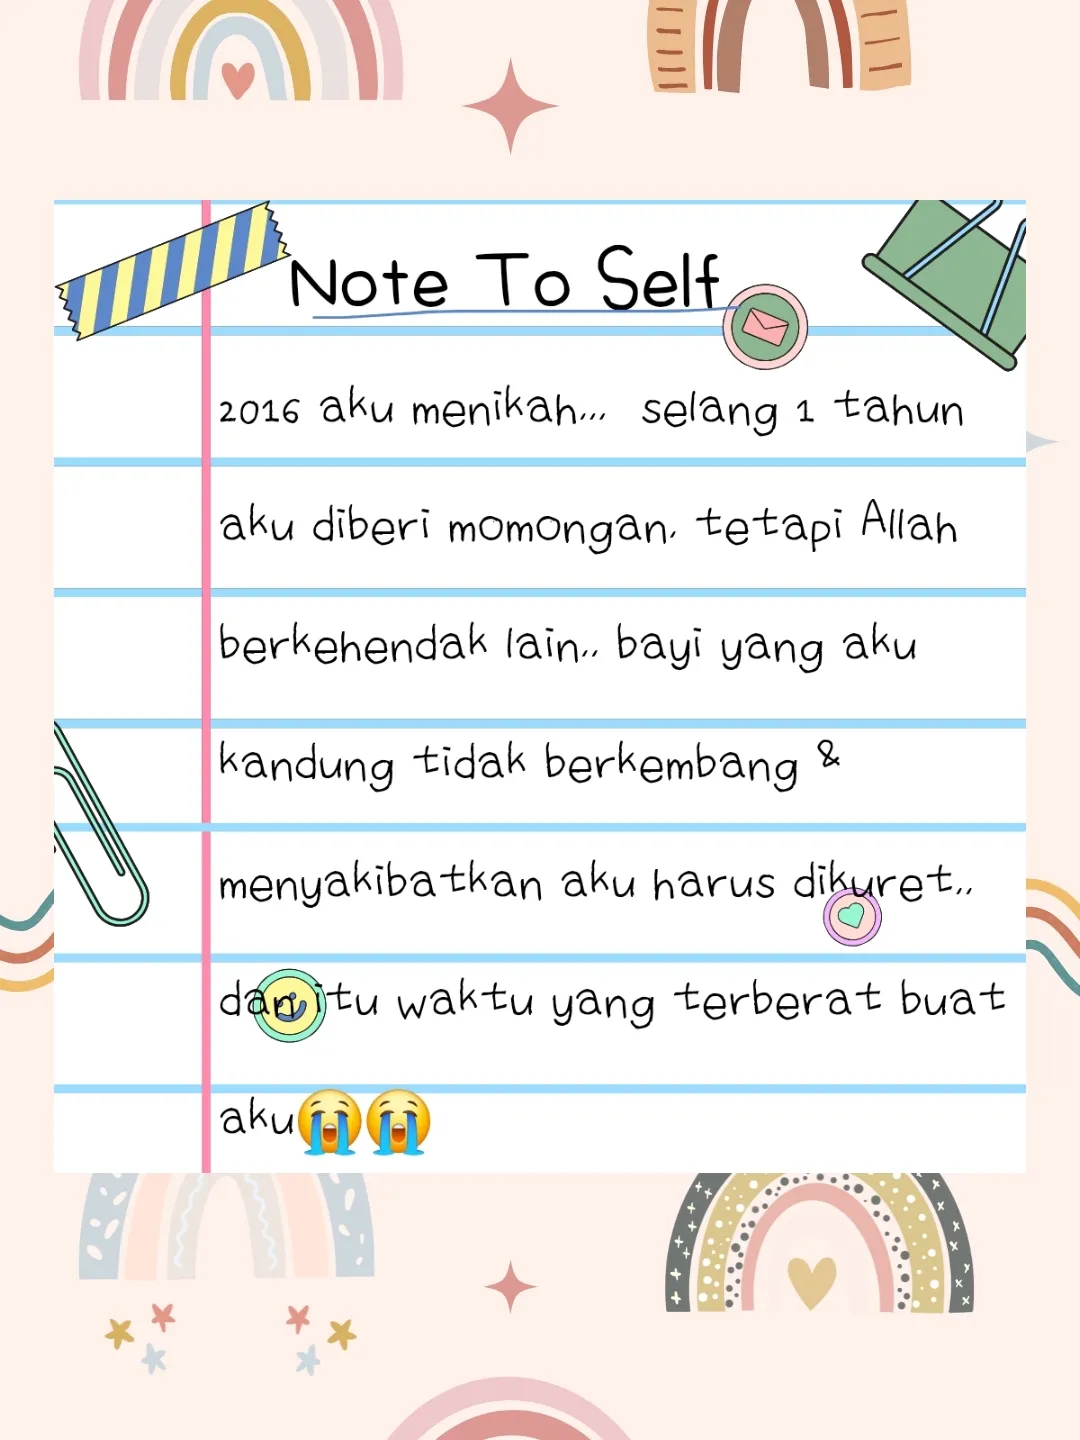 Note To Self
2016 aku menikah... selang 1 tahun
aku diberi momongan, tetapi Allah
berkehendak lain.. bayi yang aku
kandung tidak berkembang &
menyakibatkan aku harus dikuret..
dan itu waktu yang terberat buat
aku😭😭